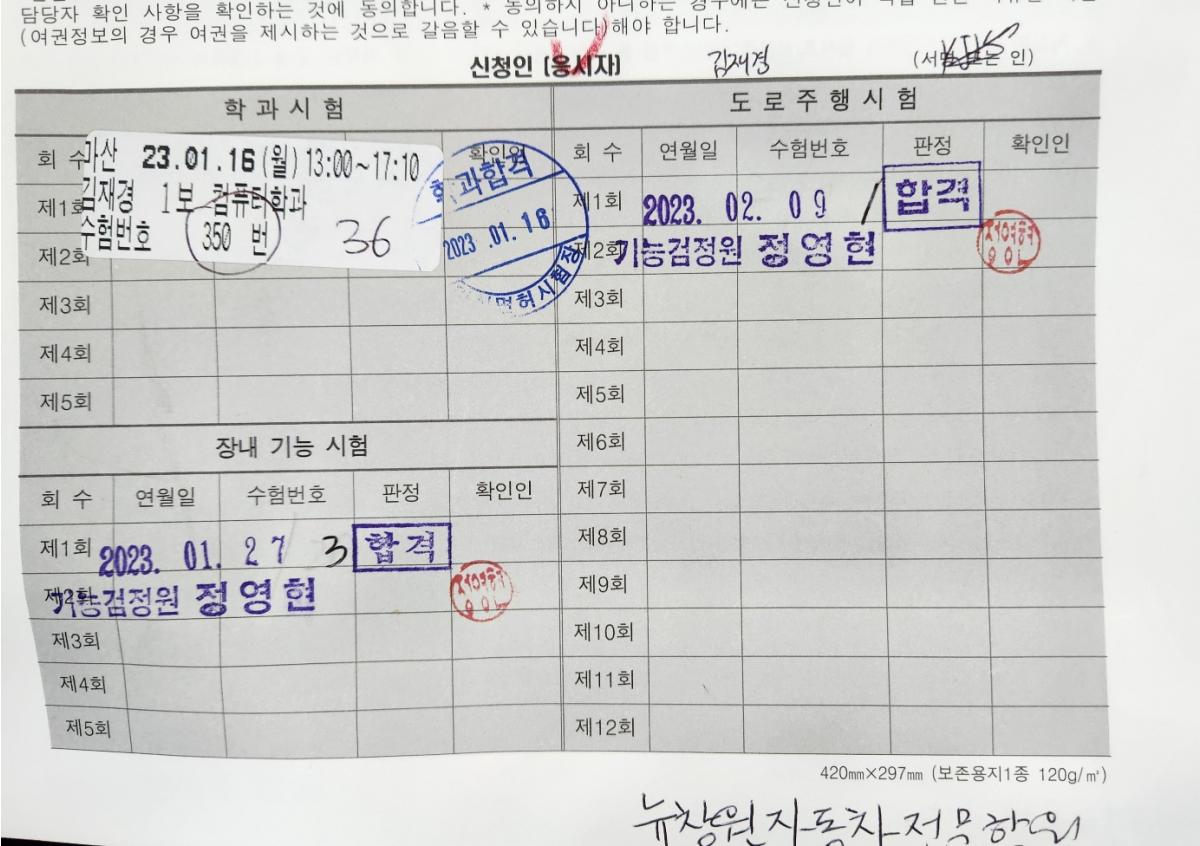 담당자 확인 사항을 확인하는 것에 동의합니다. * 동의하지 아니하는 경우에는
(여권정보의 경우 여권을 제시하는 것으로 갈음할 수 있습니다)해야 합니다.
신청인 (응시자) 김재경 (서명 또는 인)
학 과 시 험
회 수 확인인
마산 23.01.16(월)13:00~17:10
김재경 1보 컴퓨터학과
수험번호 350 번 36
학과합격
2023 .01. 16
면허시험장
제1회
제2회
제3회
제4회
제5회
장내 기능 시험
회 수 연월일 수험번호 판정 확인인
제1회 2023. 01. 27 3 합격
제2회 기능검정원 정영현
제3회
제4회
제5회
도 로 주 행 시 험
회 수 연월일 수험번호 판정 확인인
제1회 2023. 02. 09 1 합격
제2회 기능검정원 정영현
제3회
제4회
제5회
제6회
제7회
제8회
제9회
제10회
제11회
제12회
420㎜×297㎜ (보존용지1종 120g/㎡)
뉴창원자동차전문학원